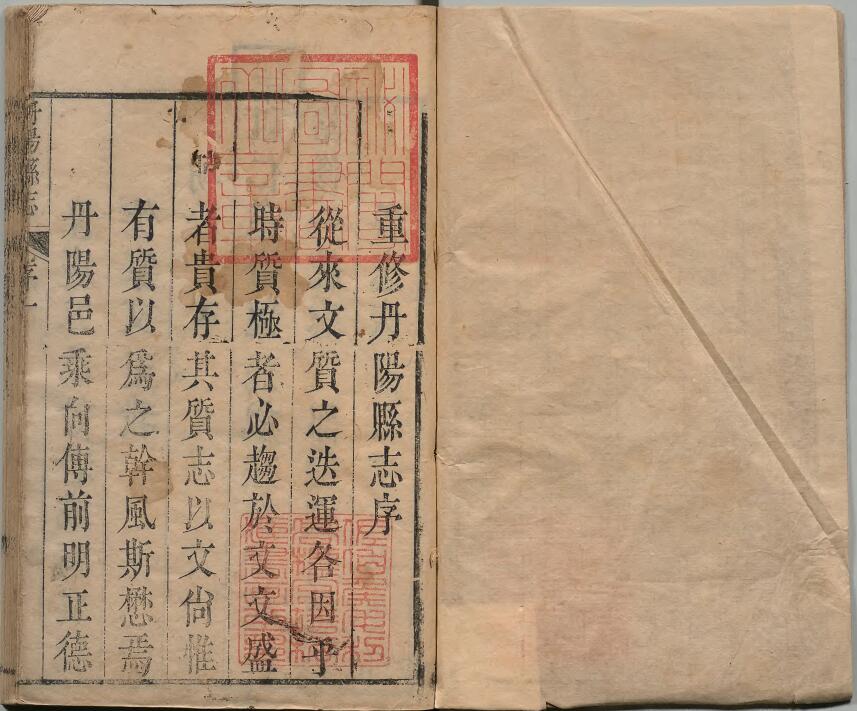 重修丹陽縣志序
從來文質之迭運各因乎
時質極者必趨於文文盛
者貴存其質志以文尙惟
有質以爲之幹風斯懋焉
丹陽邑乘向傳前明正德
丹陽縣志
序一